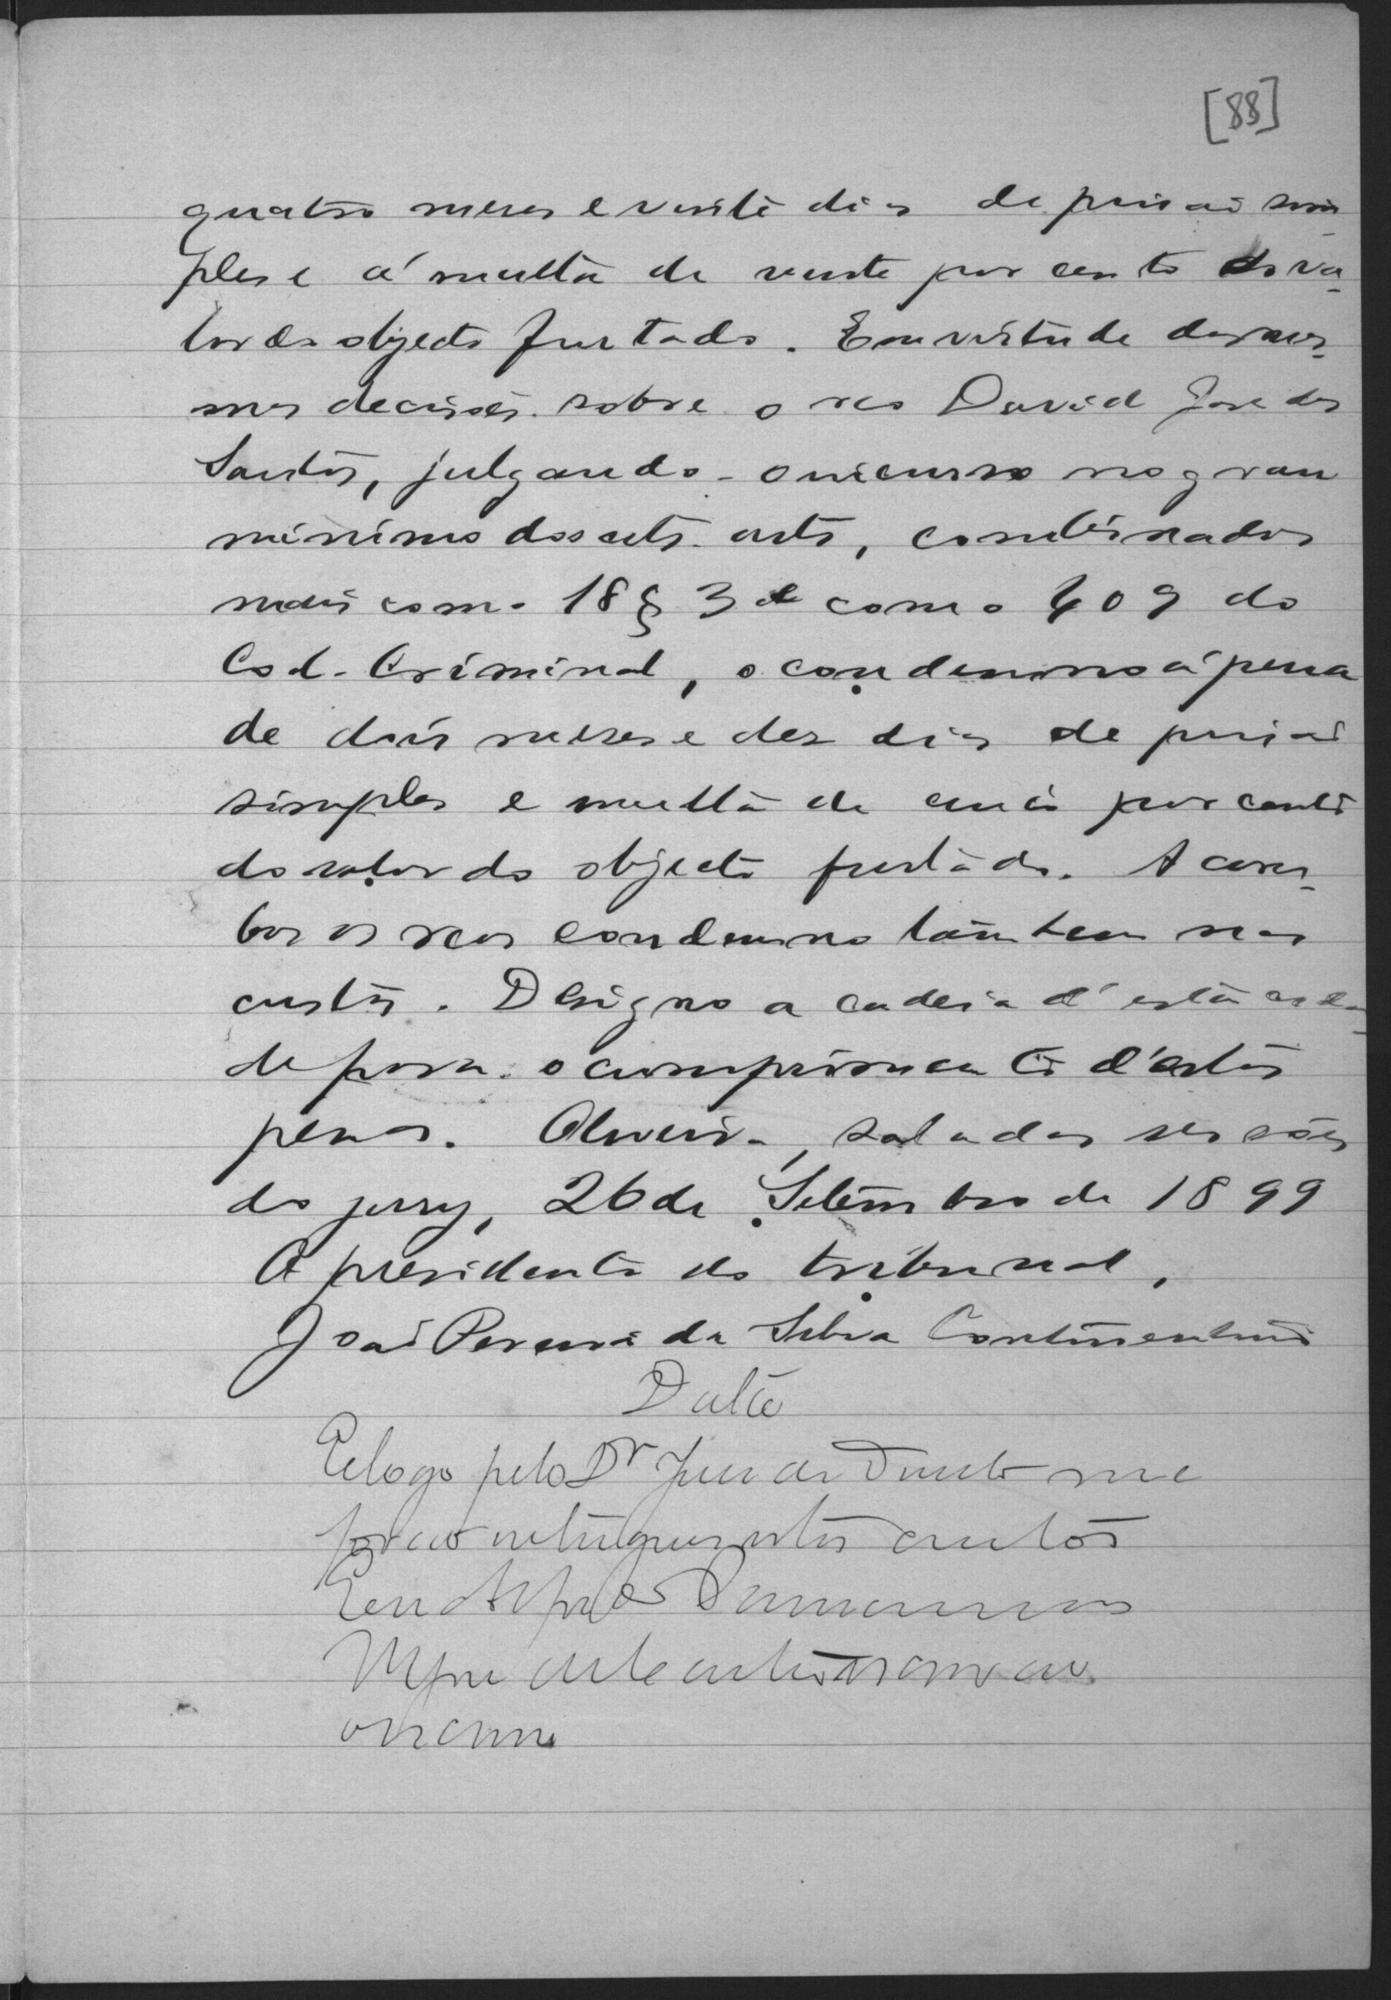 [88]
quatro meses e vinte dias de prisaõ sim-
ples e á multa de vinte por cento do va-
lor do objecto furtado. Em virtude das mes-
mas decisões sobre o reo David José dos
Santos, julgando-o incurso no grau
minimo dos cits. arts, combinados
mais com o 18 § 3 e com o 409 do
Cod. Criminal, o condemno á pena
de dois meses e dez dias de prisaõ
simples e multa de cinco por cento
do valor do objecto furtado. A am-
bos os reos condemno tambem nas
custas. Designo a cadeia d'esta cida-
de para o cumprimento d'estas
penas. Oliveira, sala das sessões
do jury, 26 de Setembro de 1899
O presidente do tribunal,
Joaõ Pereira da Silva Continentino
Data
E logo pelo Dr Juiz de Direito me
foraõ entregues estes autos